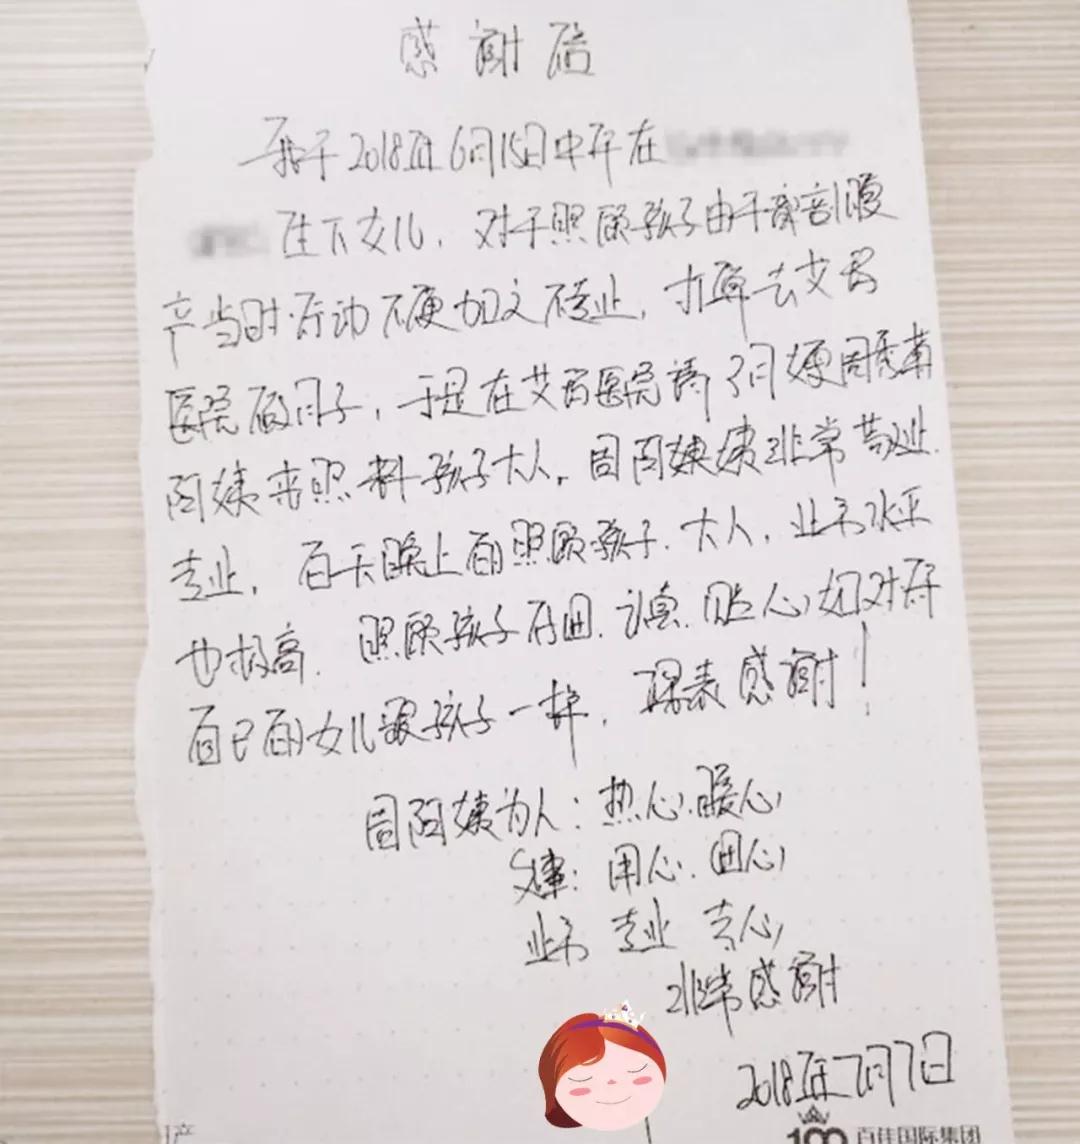 感谢信
我于2018年6月15日中午在
生下女儿，对于照顾孩子由于剖腹
产当时行动不便加又不专业，打算去艾茵
医院做月子，于是在艾茵医院请了月嫂周秀菊
阿姨来照料孩子大人。周阿姨姨非常敬业.
专业，白天晚上的照顾孩子.大人，业务水平
也极高. 照顾孩子仔细.认真.贴心如对待
自己的女儿跟孩子一样，深表感谢！
周阿姨为人：热心.暖心
做事：用心.细心
业务 专业 专心
非常感谢
2018年7月7日
100 百佳国际集团
产